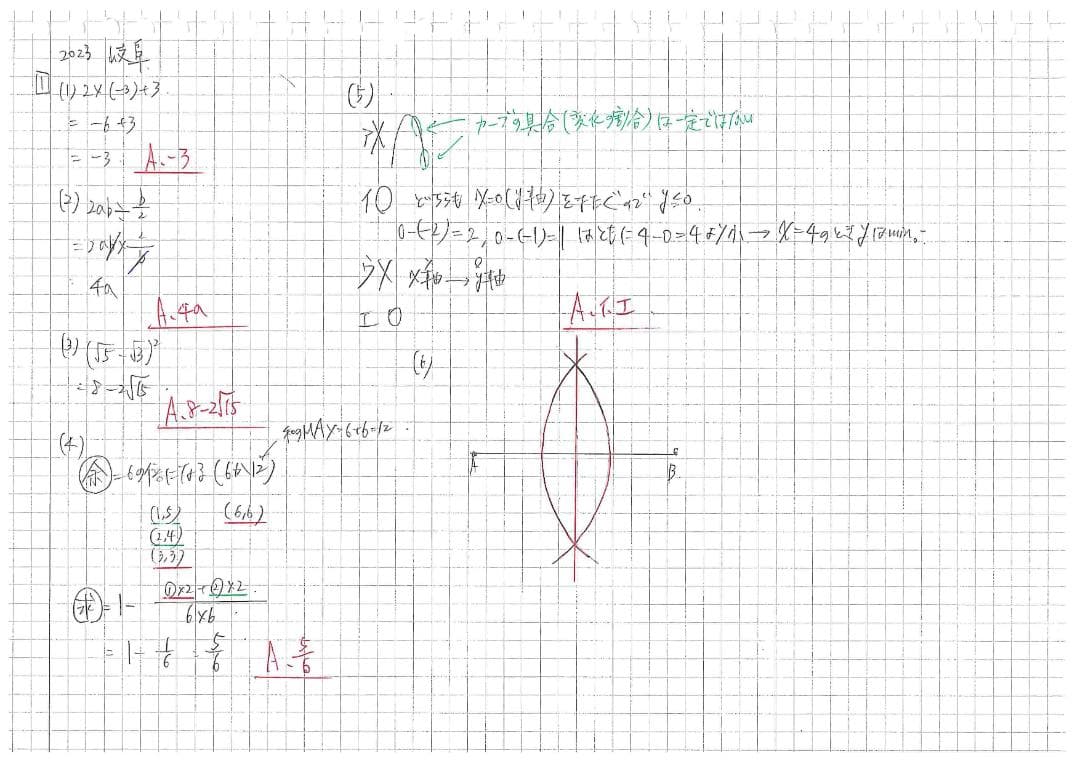 2023 岐阜
1
(1) 2×(-3)+3
= -6+3
= -3 A. -3
(2) 2ab÷b/2
= 2ab×2/b
4a
A. 4a
(3) (√5-√3)²
= 8-2√15
A. 8-2√15
(4)
和のMAX=6+6=12
余=6の倍数になる(6か12)
(1,5) (6,6)
(2,4)
(3,3)
求=1- ①×2+②×2/6×6
= 1- 1/6 = 5/6 A. 5/6
(5)
カーブの具合(変化の割合)は一定ではない
ア×
イ○ どちらも x=0(y軸)をまたぐので y≦0.
0-(-2)=2, 0-(-1)=1 はともに 4-0=4より小 → x=4のとき yはmin.
ウ× x軸→y軸
エ○
A. イ.エ
(6)
A B